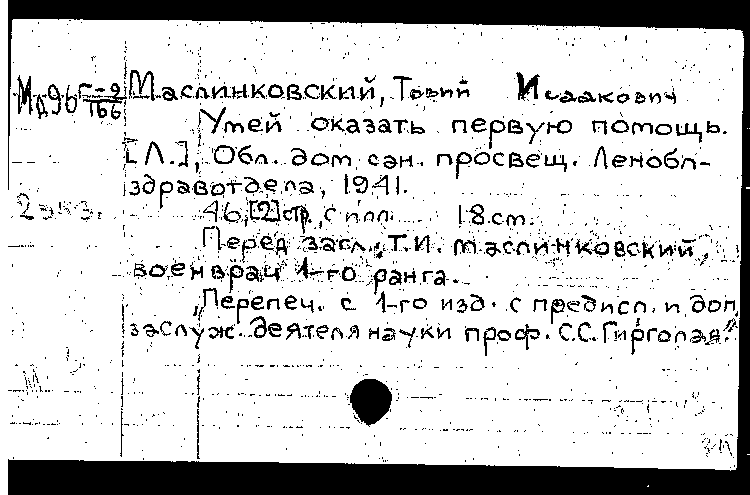 Мд96 Г-9/166 Маслинковский, Товий Исаакович
Умей оказать первую помощь.
[Л.], Обл. дом сан. просвещ. Ленобл-
здравотдела, 1941.
2 экз. 46,[2]стр. с илл. 18 см.
Перед загл.: Т.И. Маслинковский,
военврач 1-го ранга.
"Перепеч. с 1-го изд. с предисл. и доп.
заслуж. деятеля науки проф. С.С. Гирголав."
М